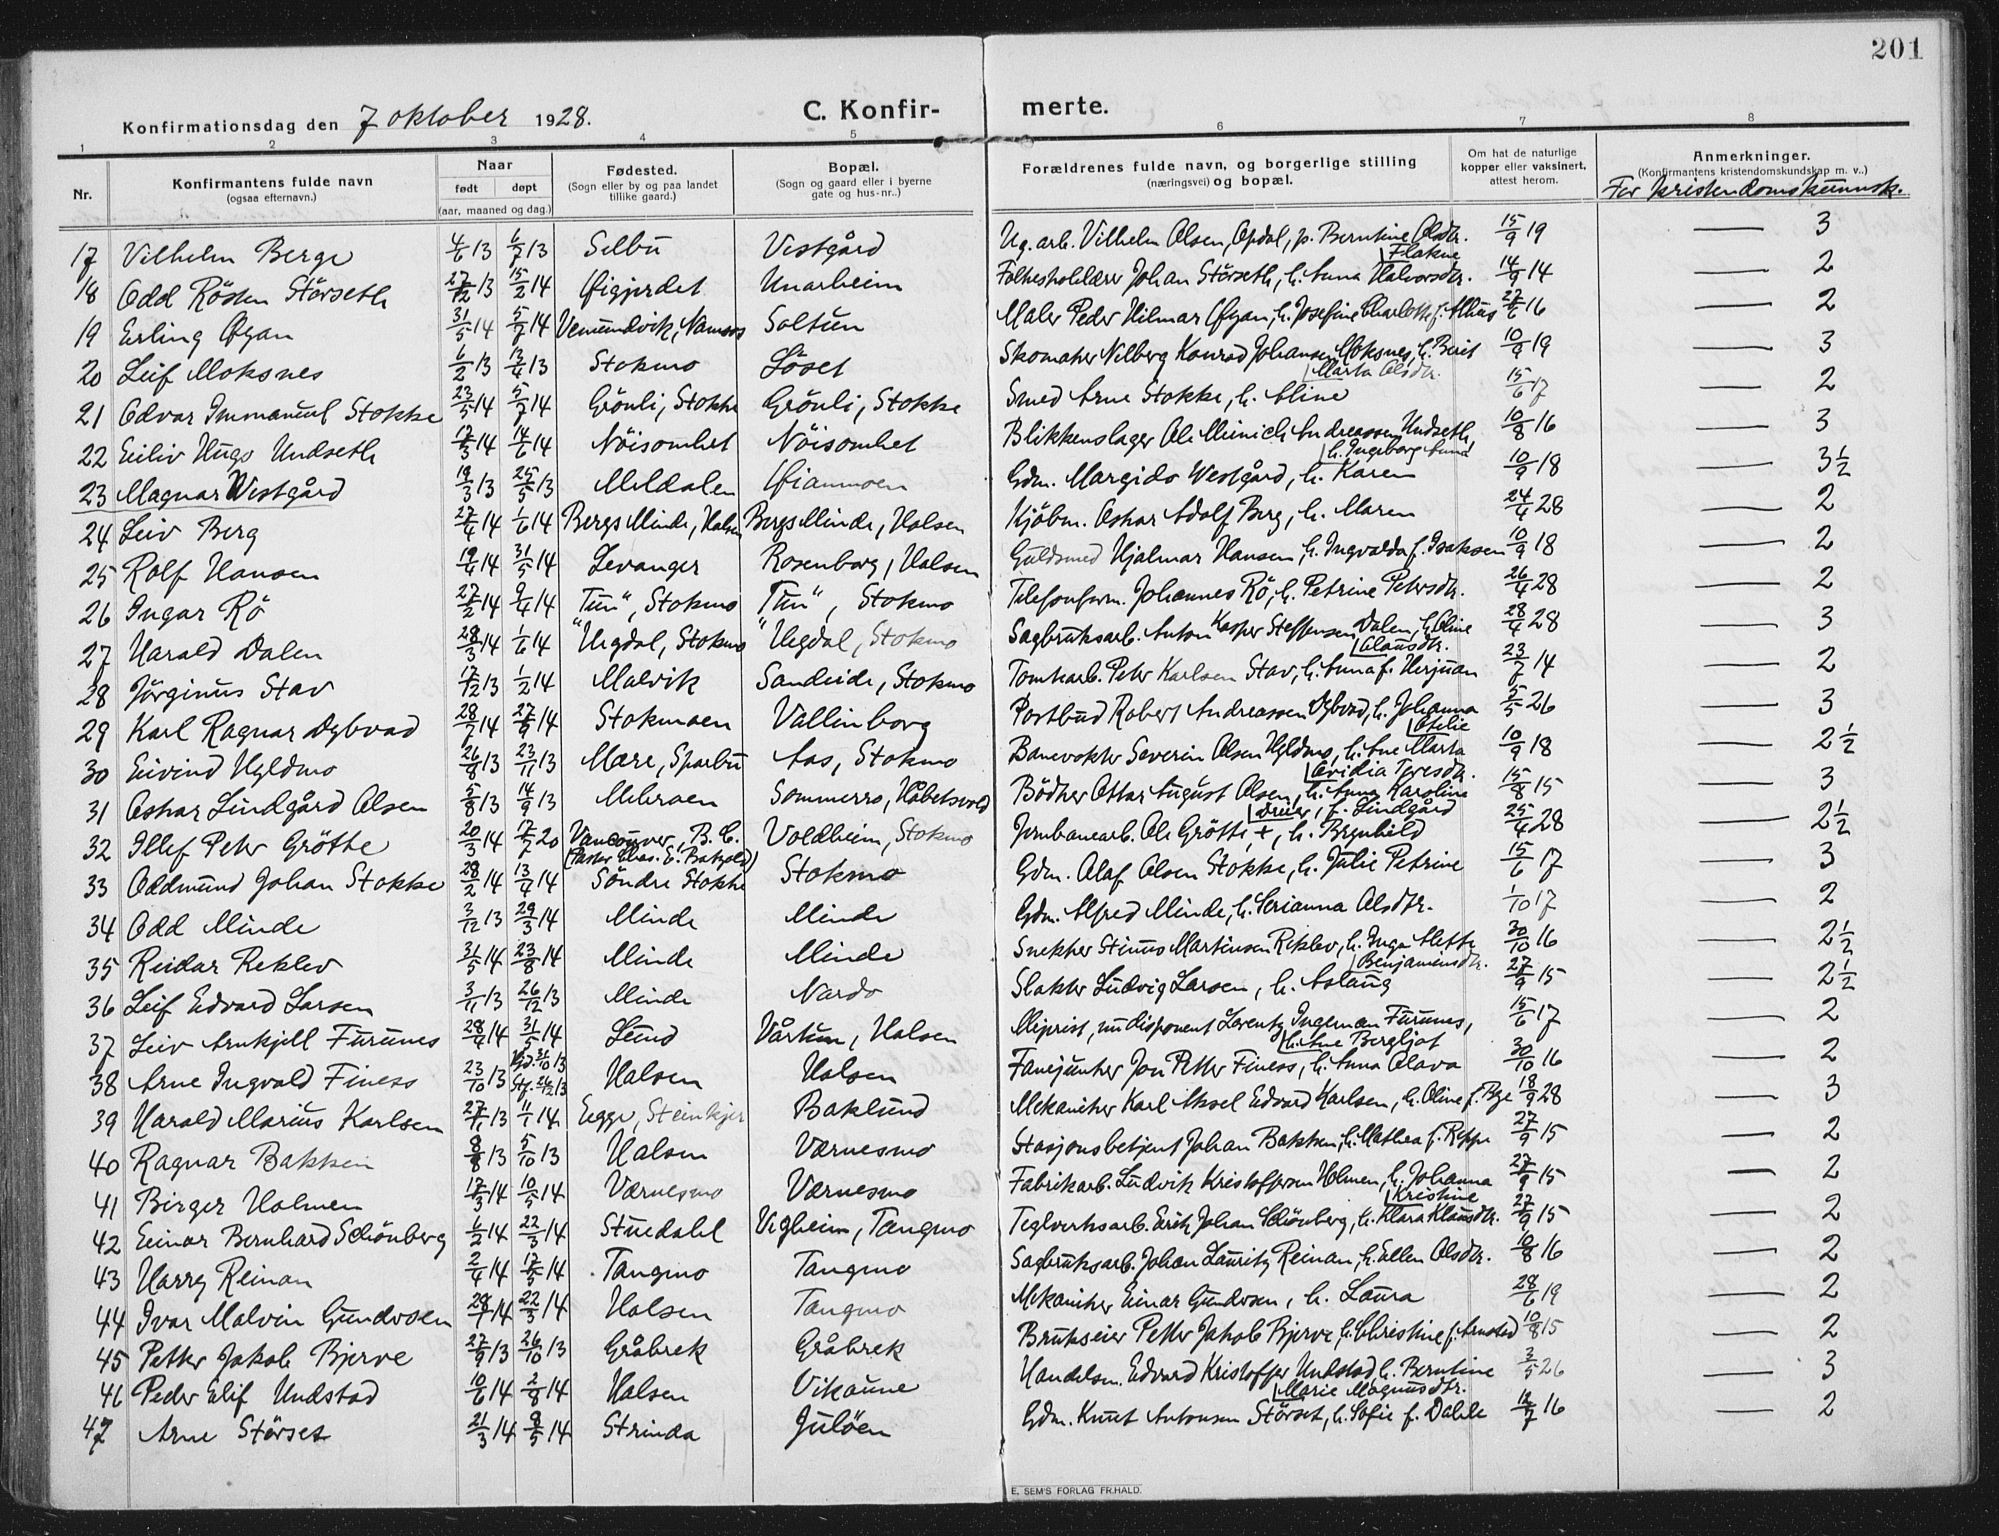 201
Konfirmationsdag den 7 oktober 1928.
C. Konfir-
merte.
1 2 3 4 5 6 7 8
Nr.
Konfirmantens fulde navn
(ogsaa efternavn.)
Naar
født døpt
(aar, maaned og dag.)
Fødested.
(Sogn eller by og paa landet
tillike gaard.)
Bopæl.
(Sogn og gaard eller i byerne
gate og hus-nr..)
Forældrenes fulde navn, og borgerlige stilling
(næringsvei) og bopæl.
Om hat de naturlige
kopper eller vaksinert,
attest herom.
Anmerkninger.
(Konfirmantens kristendomskundskap m. v..)
For kristendomskunnsk.
17 Vilhelm Berge 4/6 13 6/7 13 Selbu Vestgård Ug. arb. Vilhelm Olsen, Opdal, p. Berntine Olsdtr. Flakne 15/9 19 — 3
18 Odd Røsten Størseth 27/12 13 15/2 14 Øigjerdet Unarheim Folkeskolelærer Johan Størseth, h. Anna Halvorsdtr. 14/9 14 — 2
19 Erling Øyan 31/5 14 5/7 14 Vemundvik, Namsos Soltun Maler Peder Hilmar Øyan, h. Josefine Charlotte f. Alhus 27/6 16 — 2
20 Leif Moksnes 6/2 13 13/4 13 Stokmo Löset Skomaker Nilberg Konrad Johansen Moksnes, h. Berit Marta Olsdtr. 10/9 19 — 3
21 Odvar Immanuel Stokke 23/5 14 5/7 14 Grönli, Stokke Grönli, Stokke Smed Arne Stokke, h. Aline 15/6 17 — 2
22 Eiliv Hugo Undseth 17/3 14 14/6 14 Nöisomhet Nöisomhet Blikkenslager Ole Meinich Andreassen Undseth, h. Ingeborg Aund 10/8 16 — 3
23 Magnar Westgård 19/3 13 25/5 13 Meldalen Øiammoen Gdm. Margido Westgård, h. Karen 10/9 18 — 3½
24 Leiv Berg 27/4 14 1/6 14 Bergs Minde, Halsen Bergs Minde, Halsen Kjöbm. Oskar Adolf Berg, h. Maren 24/4 28 — 2
25 Rolf Hansen 19/4 14 31/5 14 Levanger Rosenborg, Halsen Guldsmed Hjalmar Hansen, h. Ingvalda f. Isaksen 10/9 18 — 2
26 Ingar Rö 27/2 14 9/4 14 "Tun", Stokmo "Tun", Stokmo Telefonform. Johannes Rö, h. Petrine Petersdtr. 26/4 28 — 2
27 Harald Dalen 28/3 14 1/6 14 Vegdal, Stokmo Vegdal, Stokmo Sagbruksarb. Anton Kasper Steffensen Dalen, h. Oline Clausdtr. 28/4 28 — 3
28 Jörginus Stav 17/12 13 1/2 14 Malvik Sandeide, Stokmo Tomtearb. Peter Karlsen Stav, h. Anna f. Herjuan 23/7 14 — 2
29 Karl Ragnar Dybvad 28/7 14 27/9 14 Stokmoen Vallinborg Postbud Robert Andreassen Dybvad, h. Johanna Otelie 5/5 26 — 3
30 Eivind Hyldmo 26/8 13 23/11 13 Mære, Sparbu Aas, Stokmo Banevokter Severin Olsen Hyldmo, h. Ane Marta Ovidia Toresdtr. 10/9 18 — 2½
31 Oskar Lindgård Olsen 5/8 13 14/9 13 Mebroen Sommerro, Håbetsvold Bödker Ottar August Olsen, h. Anna Karoline f. Lindgård 15/8 15 — 3
32 Illef Peter Grötte 20/3 14 17/2 20 Vancouver, B. C. Voldheim, Stokmo Jernbanearb. Ole Grötte, +, h. Brynhild 25/4 28 — 2½
33 Oddmund Johan Stokke 28/2 14 13/4 14 Söndre Stokke Stokmo Gdm. Olaf Olsen Stokke, h. Julie Petrine 15/6 17 — 3
34 Odd Minde 3/12 13 29/3 14 Minde Minde Gdm. Alfred Minde, h. Serianna Olsdtr. 1/10 17 — 2
35 Reidar Reklev 31/5 14 23/8 14 Minde Minde Snekker Stinus Martinsen Reklev, h. Inga Mette Benjaminsdtr. 30/10 16 — 2½
36 Leif Edvard Larsen 3/11 13 26/12 13 Minde Nardo Slakter Ludvig Larsen, h. Aslaug 27/9 15 — 2½
37 Leiv Arnkjell Furunes 28/4 14 31/5 14 Lund Vårtun, Halsen Meierist, nu disponent Lorentz Ingeman Furunes, h. Ane Bergljot 15/6 17 — 2
38 Arne Ingvald Finess 23/10 13 Hjd. 31/10 13 Stf. 26/12 13 Halsen Halsen Fanejunker Jon Petter Finess, h. Anna Olava 30/10 16 — 2
39 Harald Marius Karlsen 27/11 13 11/1 14 Egge, Steinkjer Baklund Mekaniker Karl Aksel Edvard Karlsen, h. Oline f. Bye 18/9 28 — 3
40 Ragnar Bakken 8/8 13 5/10 13 Halsen Værnesmo Stasjonsbetjent Johan Bakken, h. Mathea f. Reppe 27/9 15 — 2
41 Birger Holmen 17/3 14 10/5 14 Værnesmo Værnesmo Fabrikarb. Ludvik Kristoffersen Holmen, h. Johanna Kristine 27/9 15 — 2
42 Einar Bernhard Schönberg 6/2 14 22/3 14 Stuedahl Vegheim, Tangmo Teglverksarb. Erik Johan Schönberg, h. Klara Klausdtr. 27/9 15 — 2
43 Harry Reinan 2/4 14 17/5 14 Tangmo Tangmo Sagbruksarb. Johan Lauritz Reinan, h. Ellen Olsdtr. 10/8 16 — 2
44 Ivar Malvin Gundersen 28/1 14 22/3 14 Halsen Tangmo Mekaniker Einar Gundersen, h. Laura 28/6 19 — 2
45 Petter Jakob Bjerve 27/9 13 26/10 13 Gråbrek Gråbrek Brukseier Petter Jakob Bjerve, h. Christine f. Arnstad 10/8 15 — 2
46 Peder Elif Undstad 10/6 14 2/8 14 Halsen Vikaune Handelsm. Edvard Kristoffer Undstad, h. Berntine Marie Magnusdtr. 3/5 26 — 3
47 Arne Störset 21/3 14 8/5 14 Strinda Julöen Gdm. Knut Antonsen Störset, h. Sofie f. Dahle 12/7 16 — 2
E. SEM'S FORLAG FR.HALD.